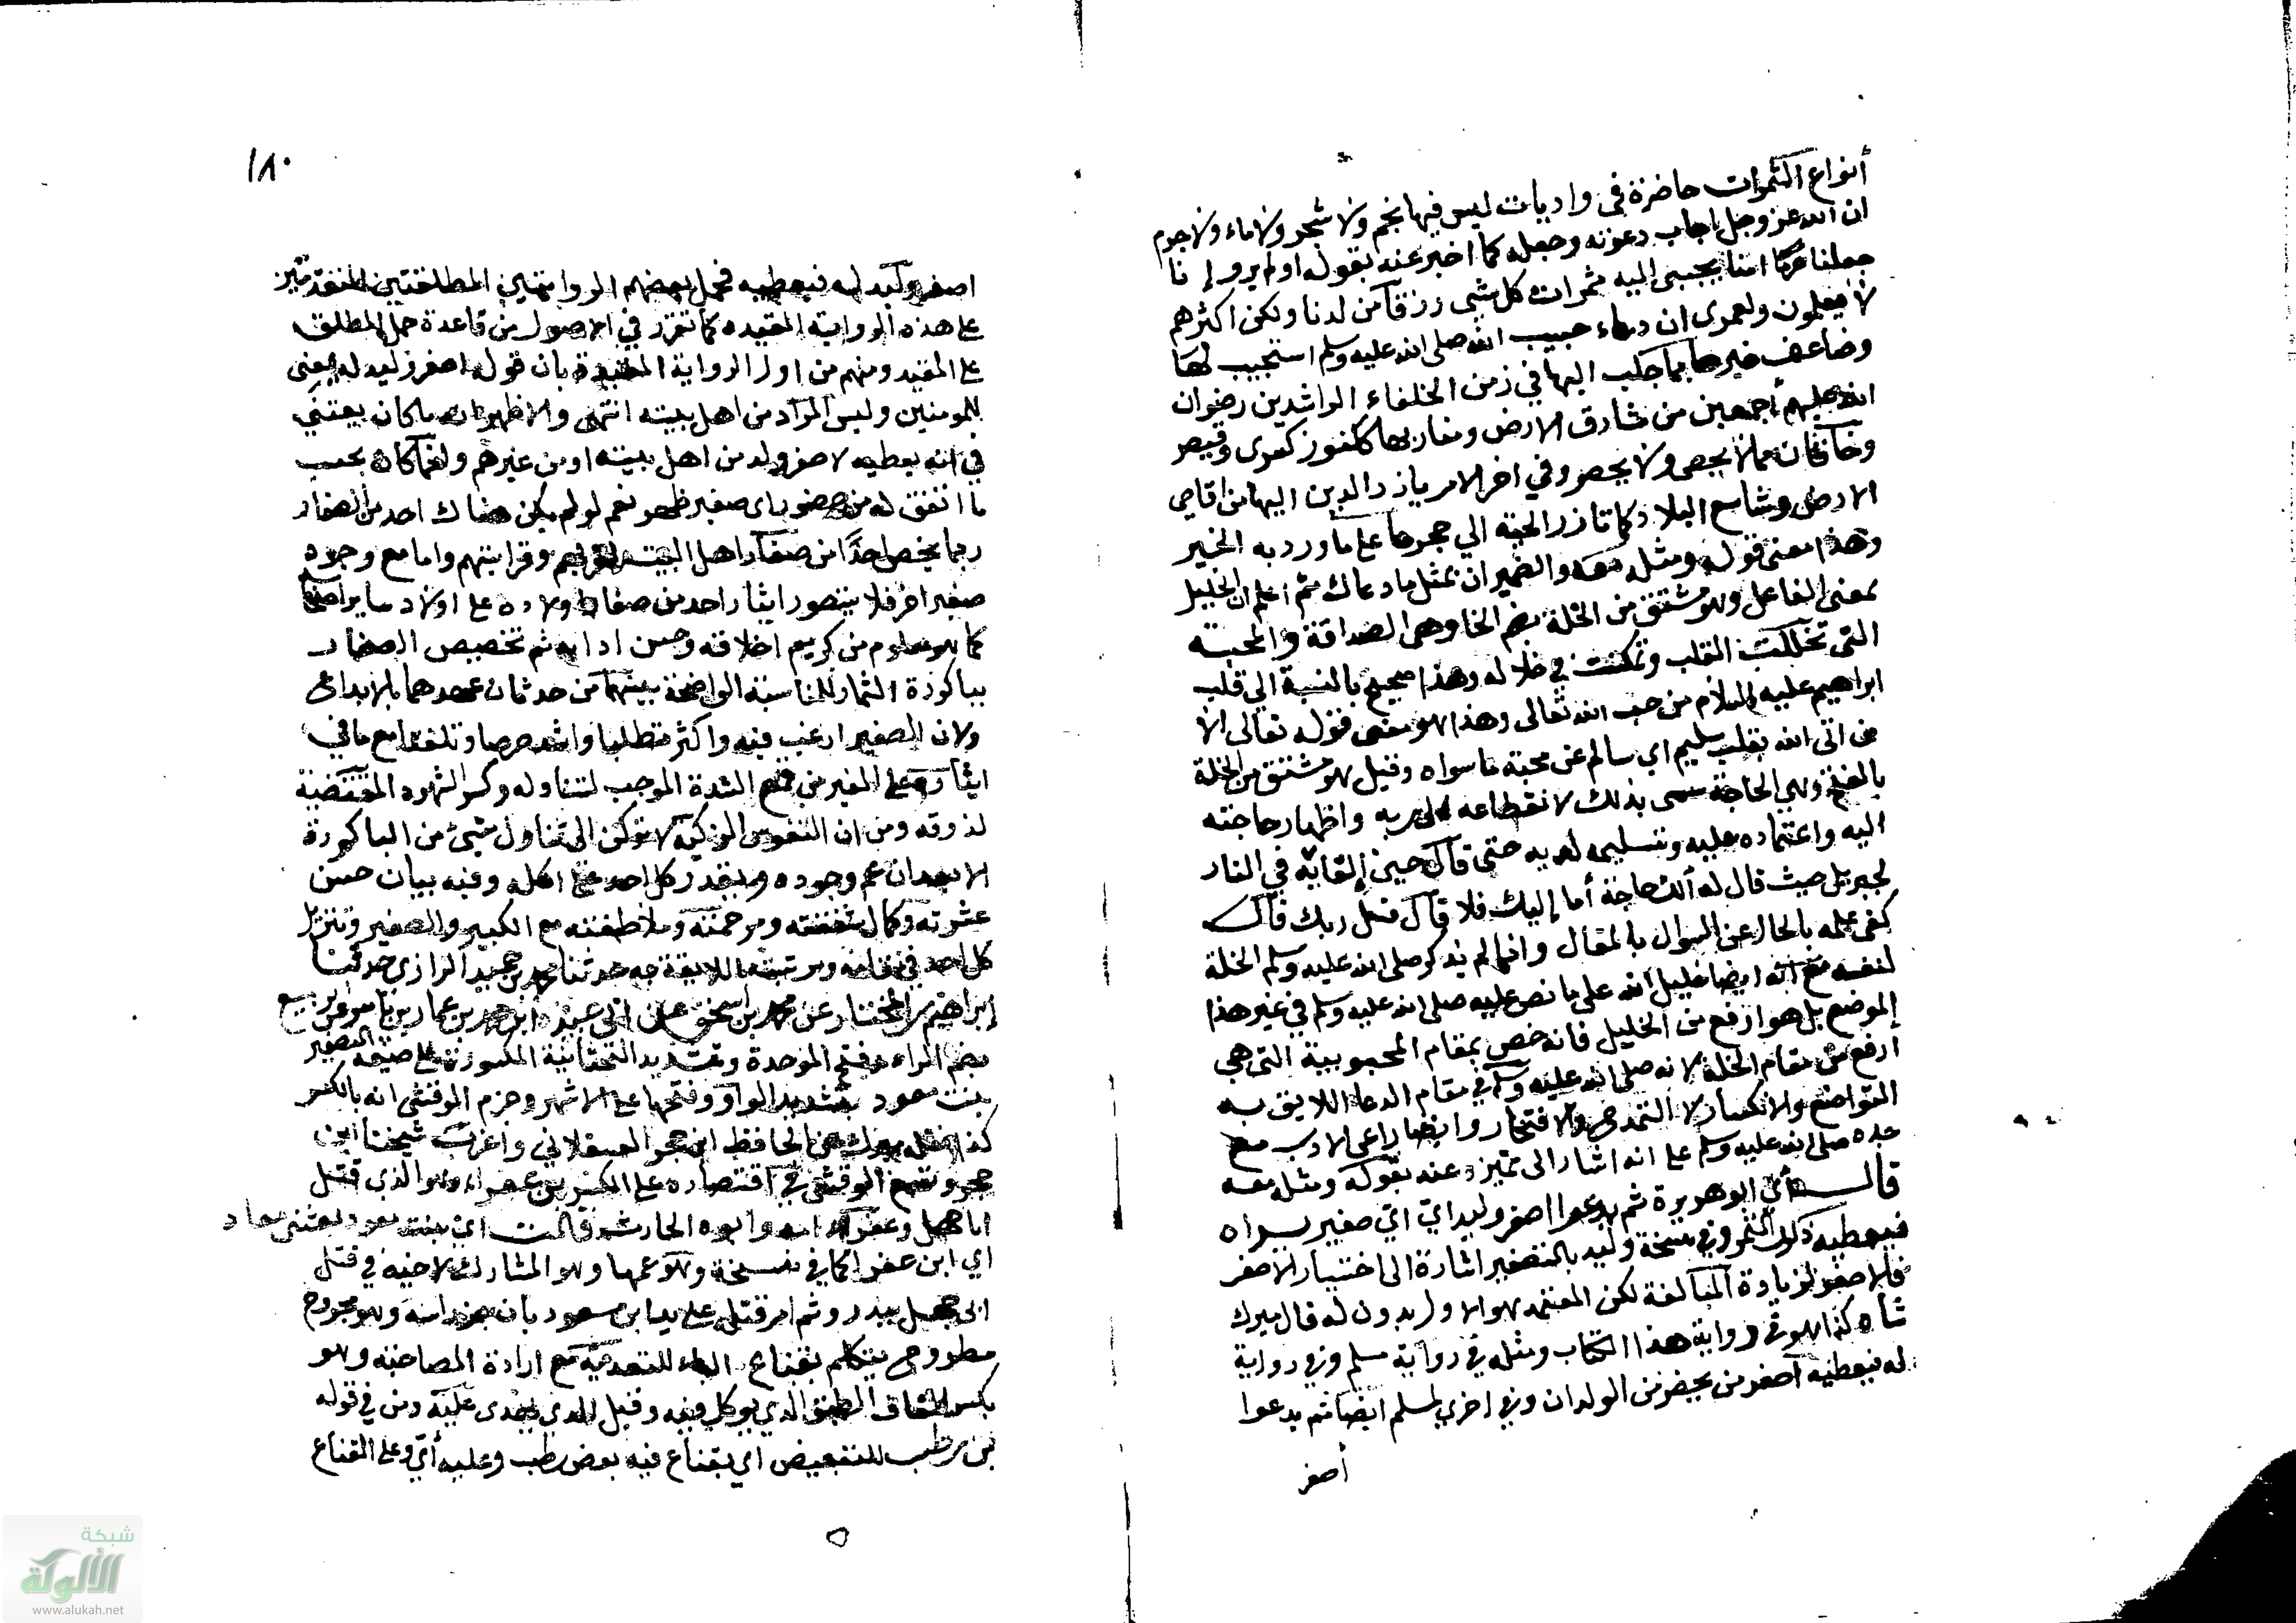 أنواع الثمرات حاضرة في واد يباب ليس فيها نجم ولا شجر ولا ماء ولا جرم
ان الله عز وجل اجاب دعوته وجعله كما اخبر عنه بقوله اولم يروا إنا
جعلنا حرما امنا يجبى اليه ثمرات كل شي رزقا من لدنا ولكن اكثرهم
لا يعلمون ولعمري ان دعاء حبيب الله صلى الله عليه وسلم استجيب لها
وضاعف خيرها بما جلب اليها في زمن الخلفاء الراشدين رضوان
الله عليهم أجمعين من مشارق الارض ومغاربها ككنوز كسرى وقيصر
وخاقان مما لا يحصى ولا يحصر وفي اخر الامر يأرز الدين اليها من اقاصي
الارض وشاسع البلاد كما تأرز الحية الي جحرها على ما ورد به الخبر
وهذا معنى قوله ومثله معه والضميران بمثل ما دعاك ثم اعلم ان الخليل
بمعنى الفاعل وهو مشتق من الخلة بضم الخا وهى الصداقة والمحبة
التي تخللت القلب وتمكنت في خلاله وهذا صحيح بالنسبة الي قلب
ابراهيم عليه السلام من حب الله تعالى وهذا هو معنى قوله تعالى الا
من اتى الله بقلب سليم اي سالم عن محبة ما سواه وقيل هو مشتق من الخلة
بالفتح وهي الحاجة سمى بذلك لانقطاعه الى ربه واظهار حاجته
اليه واعتماده عليه وتسليمه لربه حتى قال حين إلقائه في النار
لجبريل حيث قال له ألك حاجة أما إليك فلا قال فسل ربك قال
كفى علمه بالحال عن السوال بالمقال وانما لم يذكر صلى الله عليه وسلم الخلة
لنفسه مع انه ايضا خليل الله على ما نص عليه صلى الله عليه وسلم في غير هذا
الموضع بل هو ارفع من الخليل فانه خص بمقام المحبوبية التى هي
ارفع من مقام الخلة لانه صلى الله عليه وسلم في مقام الدعا اللايق به
التواضع والانكسار لا التمدح والافتخار وايضا راعى الادب مع
جده صلى الله عليه وسلم على انه اشار الى تميزه عنه بقوله ومثله معه
قال أي ابو هريرة ثم يدعوا اصغر وليد اي اي صغير يراه
فيعطيه ذلك الثمر وفي نسخة وليد بالتصغير اشارة الى اختيار الاصغر
فالاصغر لزيادة المبالغة لكن المعتمد هو الاول بدون له قال ميرك
شاه كذا هو في رواية هذا الكتاب ومثله في رواية مسلم وفي رواية
له فيعطيه أصغر من يحضر من الولدان وفي اخري لمسلم ايضا ثم يدعوا
أصغر
١٨٠
اصغر وليد له فيعطيه فحمل بعضهم الروايتين المطلقتين المتقدمتين
على هذه الرواية المقيده كما تقرر في الاصول من قاعدة حمل المطلق
على المقيد ومنهم من اول الرواية المقيدة بان قوله اصغر وليد له يعني
للمومنين وليس المراد من اهل بيته انتهى والاظهر انه ما كان يعتني
في انه يعطيه لاصغر ولد من اهل بيته او من غيرهم وانما كان بحسب
ما اتفق له من حضور اي صغير ظهر نعم لو لم يكن هناك احد من الصغار
ربما يخص احدا من صغار اهل البيت لقربهم وقرابتهم واما مع وجود
صغير اخر فلا يتصور ايثار احد من صغار اولاده على اولاد ساير اصحابه
كما هو معلوم من كريم اخلاقه وحسن ادابه ثم تخصيص الصغار
بباكورة الثمار للمناسبة الواضحة بينهما من حدثان عهدهما بالابداع
ولان الصغير ارغب فيه واكثر تطلبا واشد حرصا وتلفتا مع ما في
ايثاره على الغير من قمع الشدة الموجب لتناوله وكسر الشهود المقتضية
لذوقه ومن ان النفوس الزكية لا تركن الى تناول شيئ من الباكورة
الا بعد ان عم وجوده ويقدر كل احد على اكله وفيه بيان حسن
عشرته وكمال شفقته ومرحمته وملاطفته مع الكبير والصغير وتنزيل
كل احد في مقامه ومرتبته اللايقة به حدثنا محمد بن حميد الرازي حدثنا
إبراهيم بن المختار عن محمد بن اسحق عن ابي عبيدة بن محمد بن عمار بن ياسر عن ربيع
بضم الراء وفتح الموحدة وتشديد التحتانية المكسورة على صيغة التصغير
بنت معود بتشديد الواو وفتحها على الاشهر وجزم الوقشي انه بالكسر
كذا نقله ميرك عن الحافظ ابن حجر العسقلاني واغرب شيخنا ابن
حجر وتبع الوقشي في اقتصاره على الكسر بن عفراء وهو الذي قتل
ابا جهل وعفراء امه وابوه الحارث قالت اي بنت معود بعثني معاد
اي ابن عفرا كما في نسخة وهو عمها وهو المشارك لاخيه في قتل
ابي جهل ببدر وثم امر قتله على يد ابن مسعود بان جز راسه وهو مجروح
مطروح يتكلم بقناع الباء للتعدية مع ارادة المصاحبة وهو
بكسر القاف الطبق الذي يوكل فيه وقيل الذي يهدى عليه ومن في قوله
من رطب للتبعيض اي بقناع فيه بعض رطب وعليه أي وعلى القناع
شبكة
الألوكة
www.alukah.net